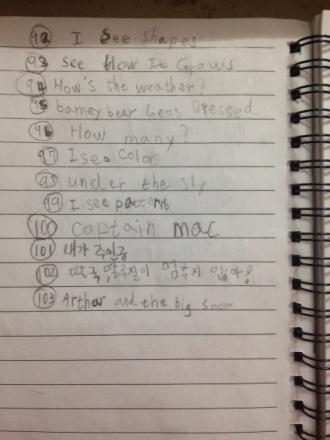 92 I See Shapes
93 See How It Grows
94 How's the weather?
95 barney bear Gets Dressed
96 How many?
97 I see Colors
98 under the sky
99 I see patterns
100 Captain mac
101 내가 주인공
102 딸꾹 딸꾹질이 멈추지 않아!
103 Arthur and the big snow